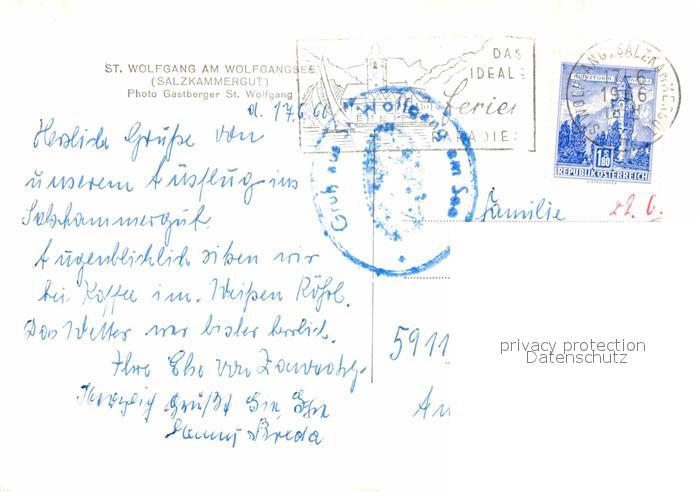 ST. WOLFGANG AM WOLFGANGSEE
(SALZKAMMERGUT)
Photo Gastberger St. Wolfgang
DAS
IDEALE
Ferien
PARADIES
ST. WOLFGANG, SALZKAMMERGUT
1966
Gruß aus St. Wolfgang am See
1.80
REPUBLIK ÖSTERREICH
d. 17.6.66
Herzliche Grüße von
unserem Ausflug ins
Salzkammergut.
Augenblicklich sitzen wir
bei Kaffee im. Weißen Rößl.
Das Wetter war bisher herrlich.
Ihre
grüßt Sie
Breda
Familie
5911
An
privacy protection
Datenschutz